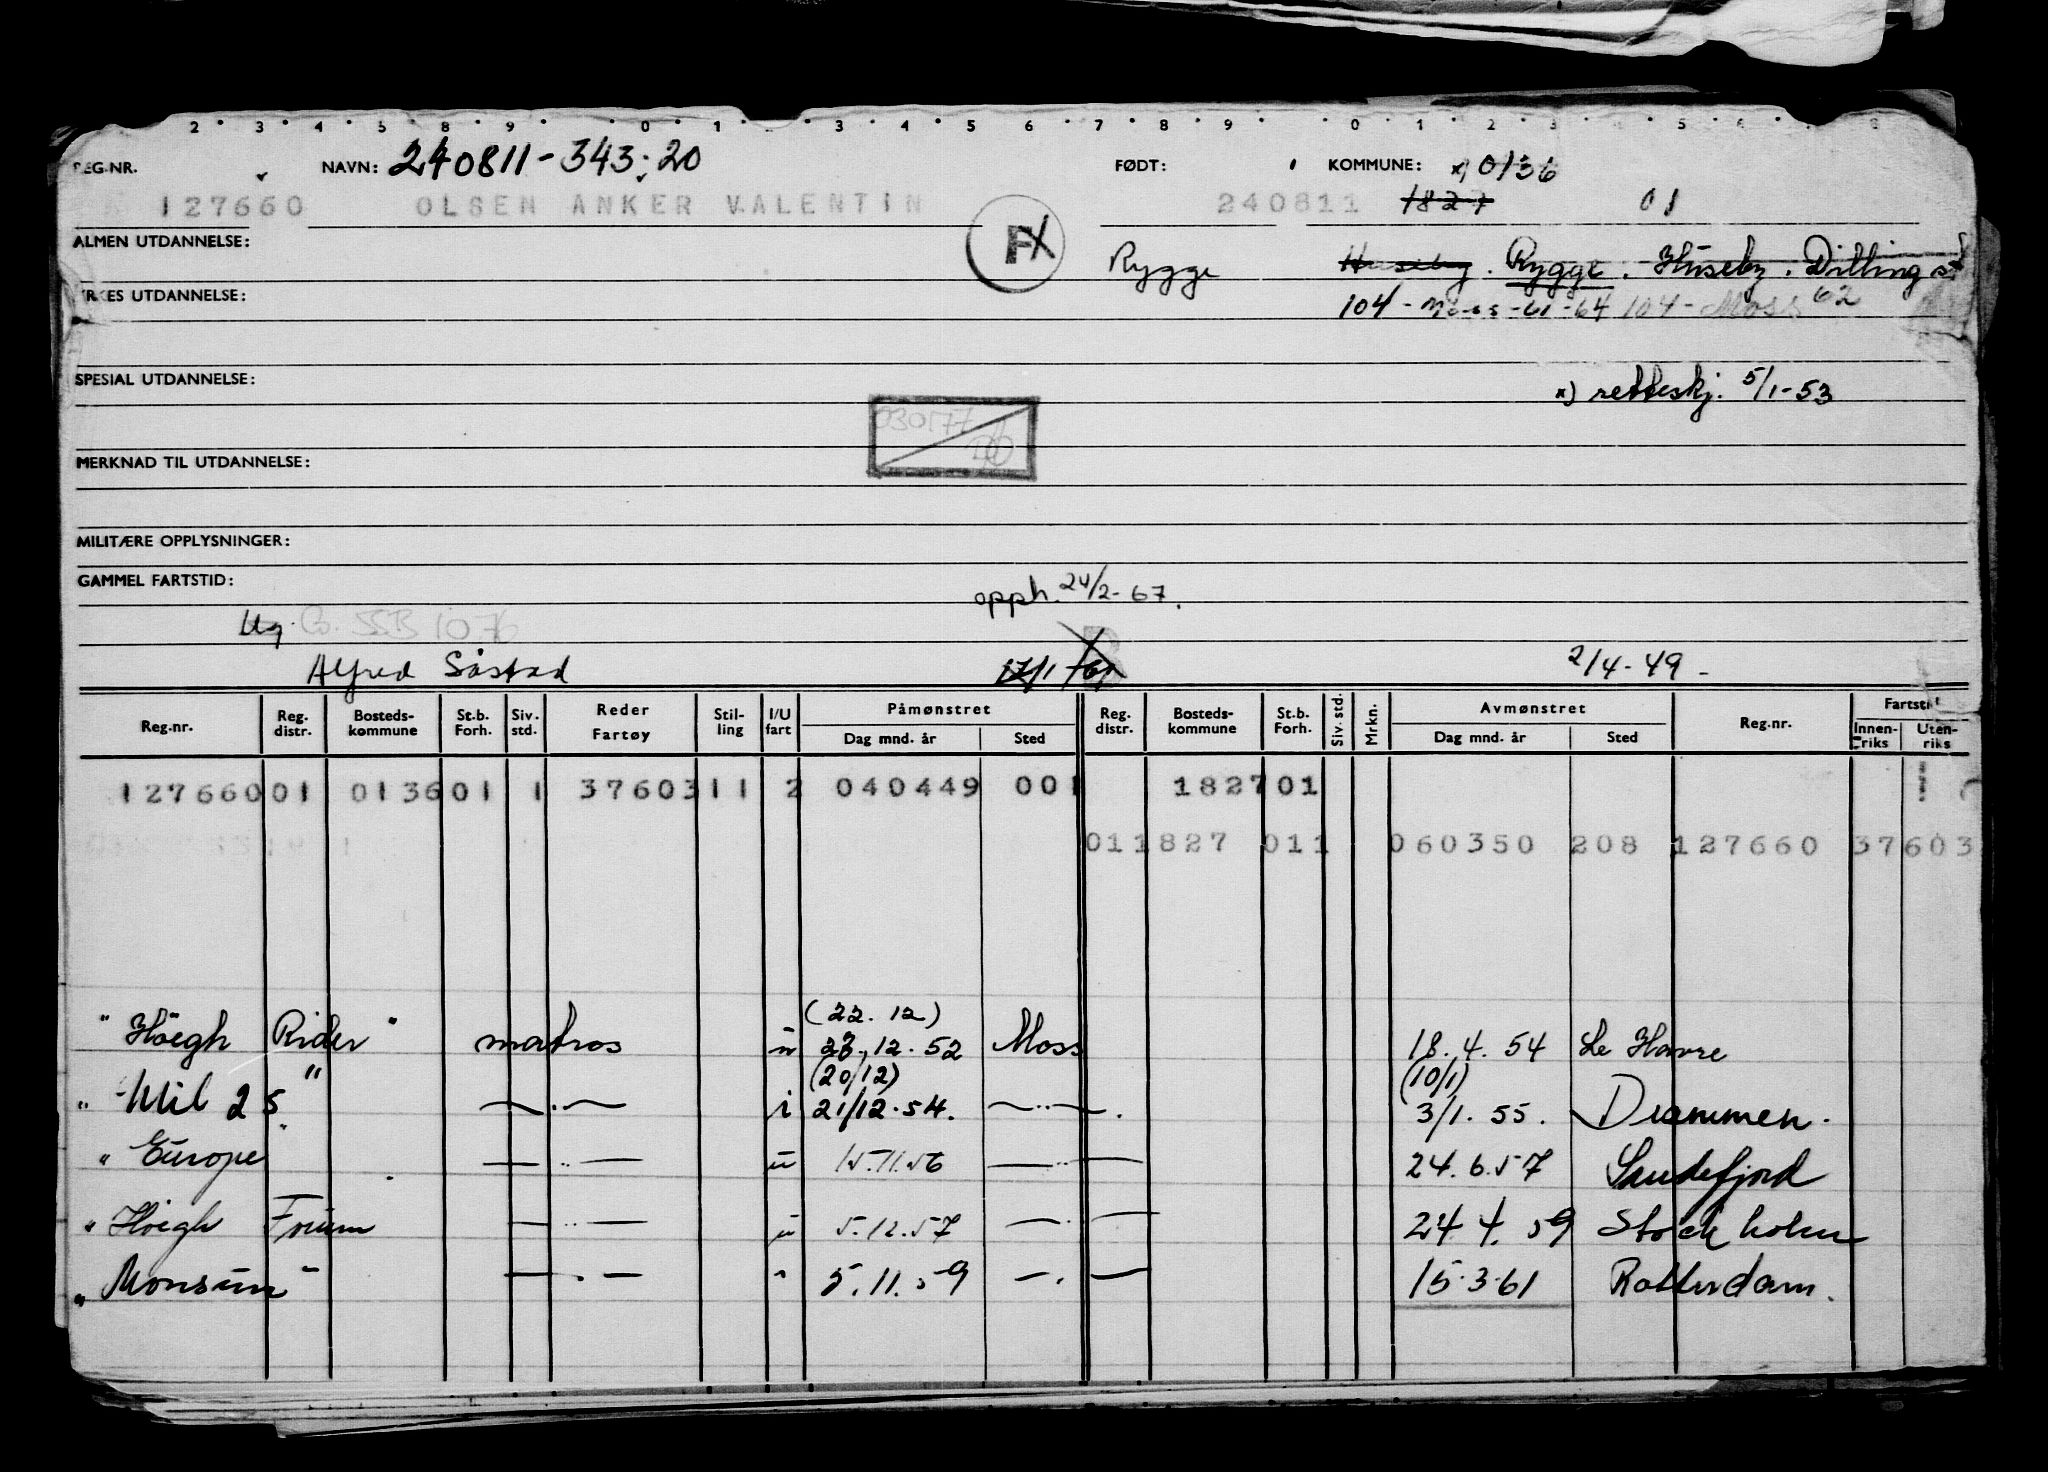 2 3 4 5 8 9 0 1 3 4 5 6 7 8 9 0 1 2 3 5 6 8
REG.NR. NAVN: 240811-343:20 FØDT: KOMMUNE: x) 0136
127660 OLSEN ANKER VALENTIN 240811 1827 01
ALMEN UTDANNELSE: F Rygge Huseby. Rygge. Huseby. Dilling st
YRKES UTDANNELSE: 104-Moss-61-64 104-Moss 62
SPESIAL UTDANNELSE: x) retteskj. 5/1-53
030177
MERKNAD TIL UTDANNELSE:
MILITÆRE OPPLYSNINGER:
GAMMEL FARTSTID: opph. 24/2-67.
Ug. G. SSB 10.76
Alfred Såstad 17/1-61 2/4-49-
Reg.nr. Reg. distr. Bosteds-kommune St.b. Forh. Siv. std. Reder Fartøy Stil-ling I/U fart Påmønstret Dag mnd. år Sted Reg. distr. Bosteds-kommune St.b. Forh. Siv. std. Mrkn. Avmønstret Dag mnd. år Sted Reg.nr. Fartstid Innen-riks Uten-riks
127660 01 0136 01 1 37603 11 2 040449 001 1827 01
01 1827 01 1 060350 208 127660 37603
(22.12)
"Höegh Rider" matros u 23.12.52 Moss 18.4.54 Le Havre
(20/12) (10/1)
"Mil 25" —..— i 21/12.54. —..—. 3/1.55. Drammen.
"Europe" —..— u 15.11.56 —..— 24.6.57 Sandefjord
"Höegh Trium —..— u 5.12.57 —..— 24.4.59 Stockholm
"Monsun" —..— " 5.11.59 —.— 15.3.61 Rotterdam.